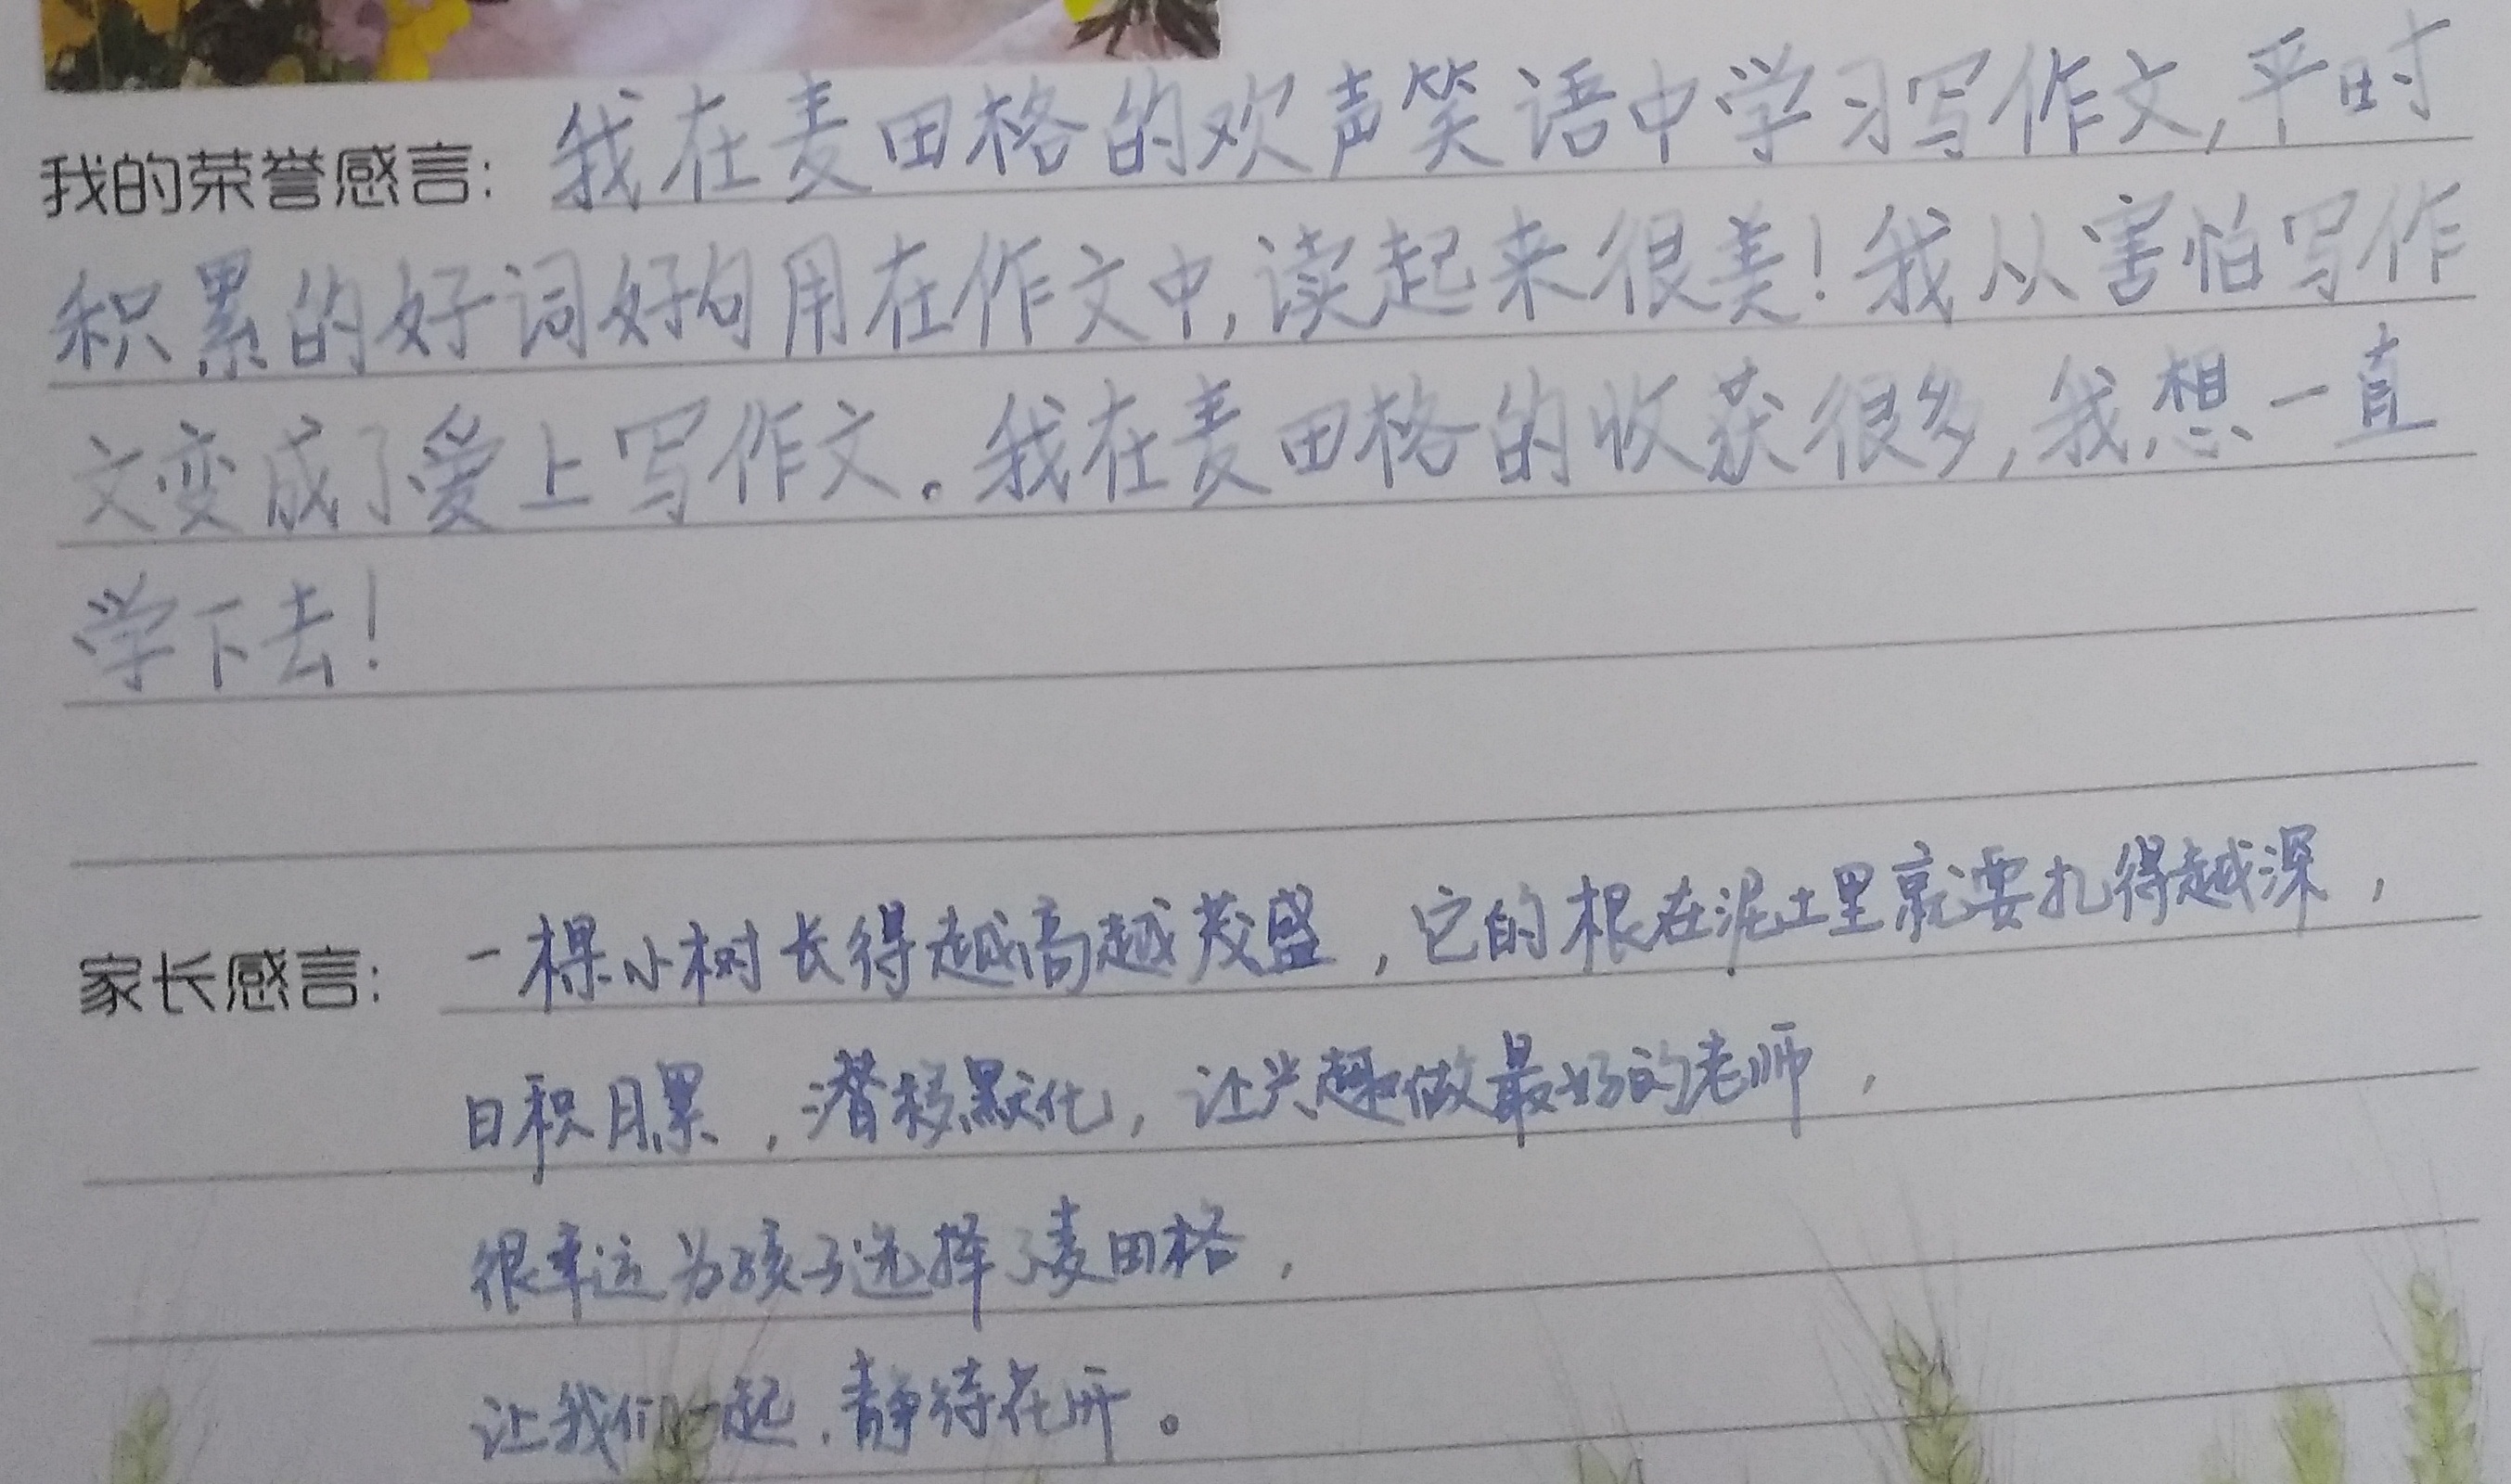 我的荣誉感言：我在麦田格的欢声笑语中学习写作文，平时
积累的好词好句用在作文中，读起来很美！我从害怕写作
文变成了爱上写作文。我在麦田格的收获很多，我想一直
学下去！
家长感言：一棵小树长得越高越茂盛，它的根在泥土里就要扎得越深，
日积月累，潜移默化，让兴趣做最好的老师，
很幸运为孩子选择了麦田格，
让我们一起，静待花开。